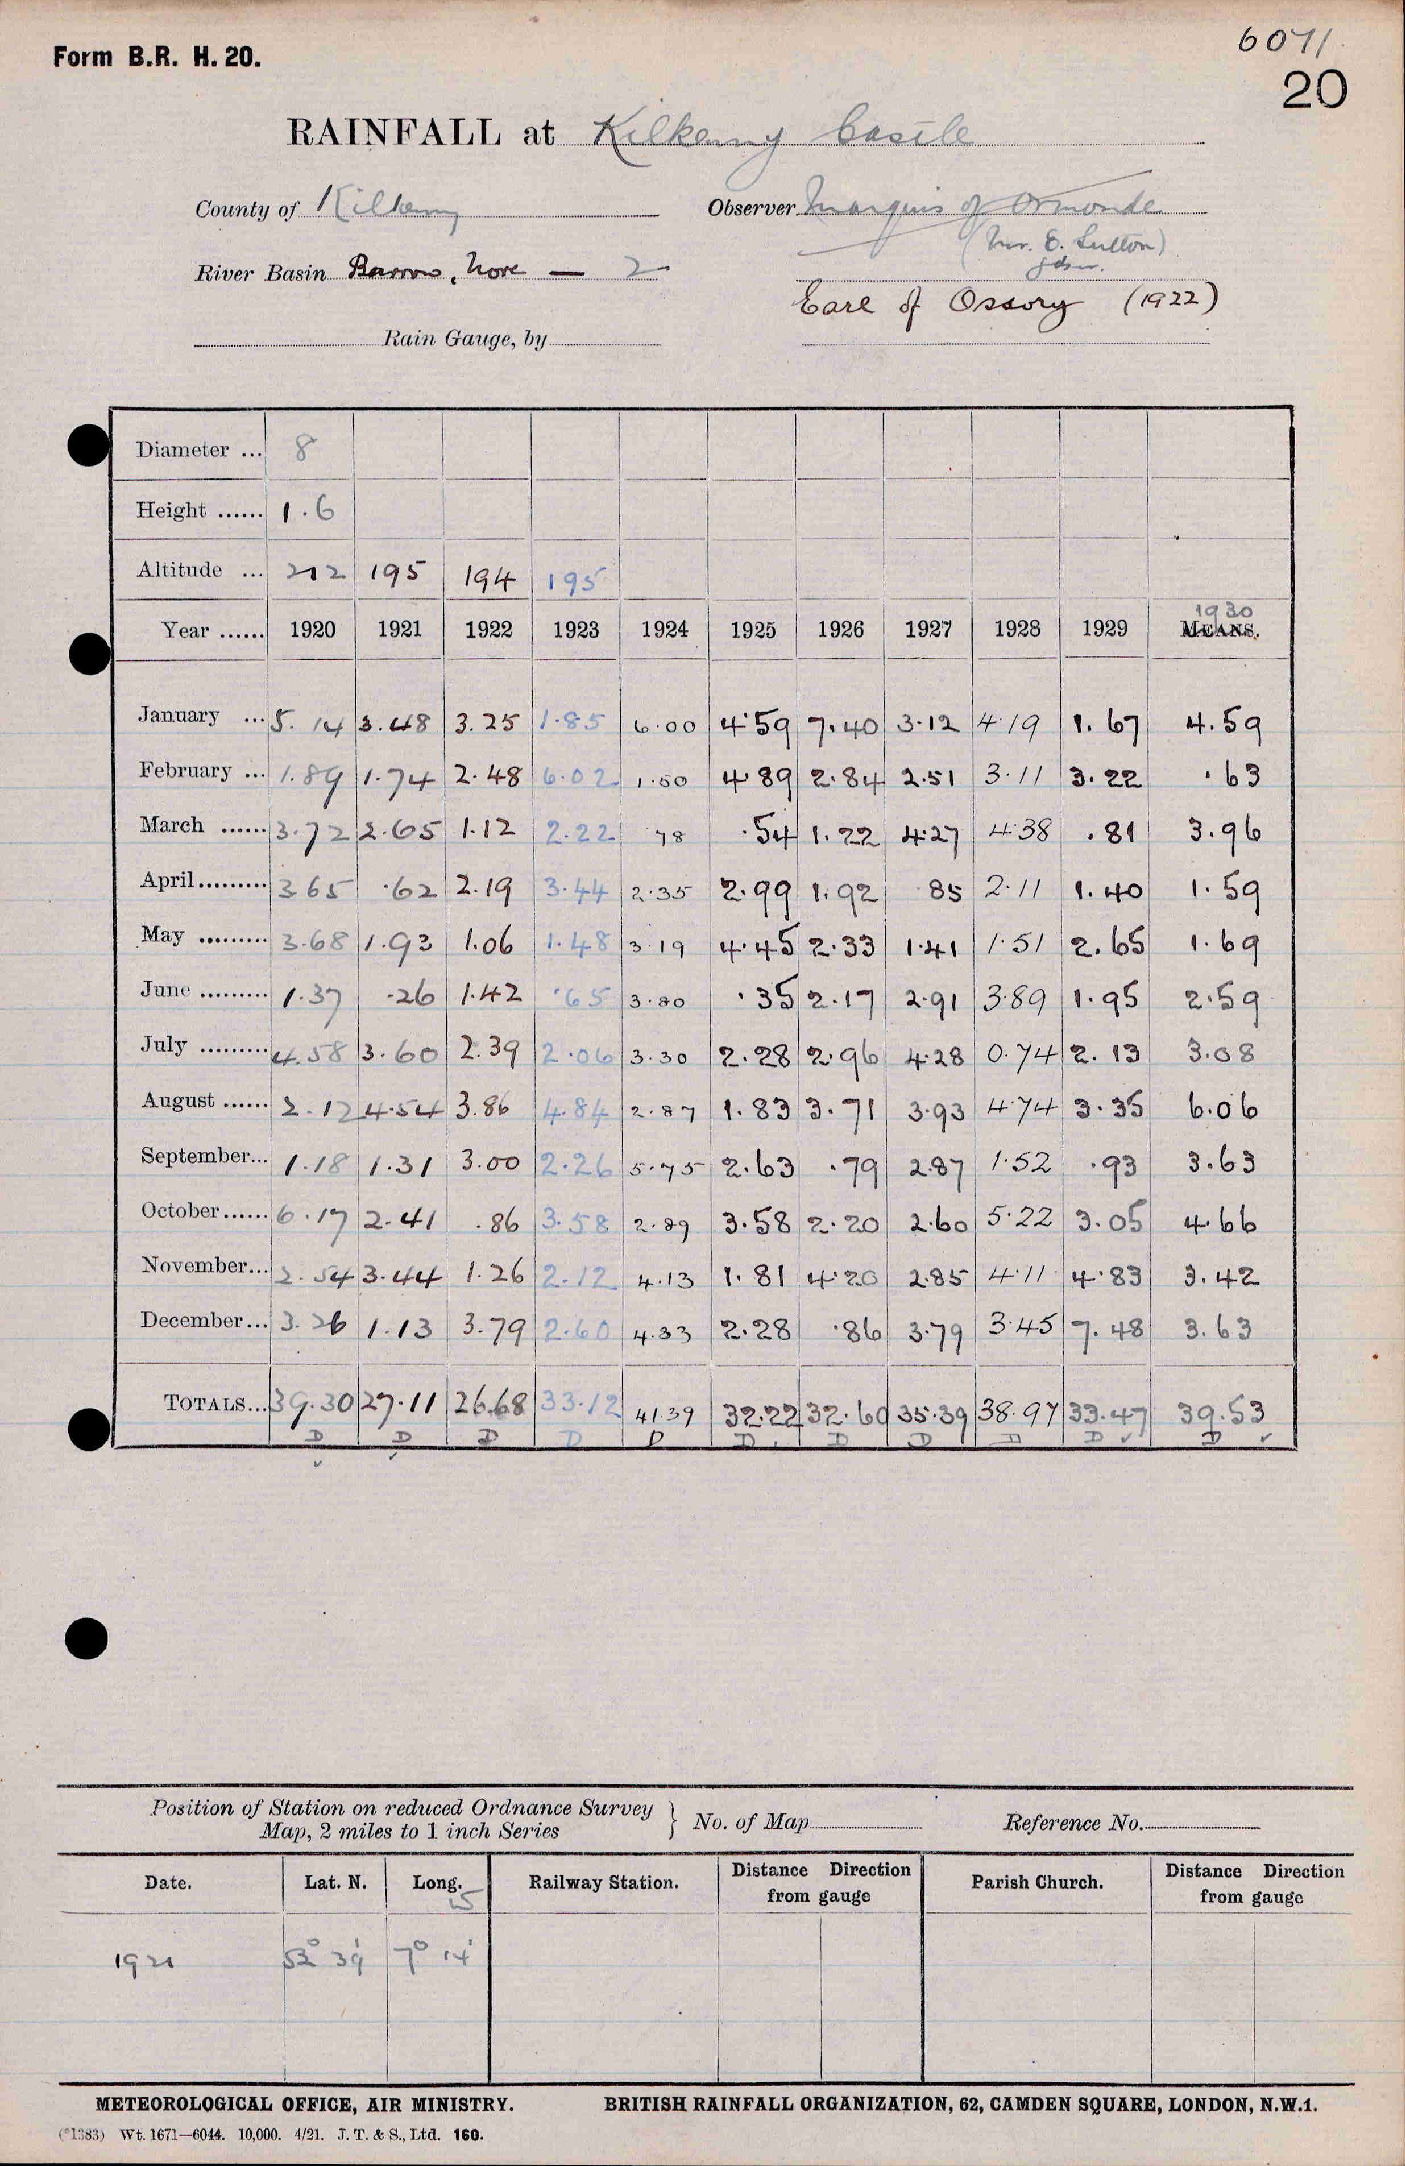 Form B.R. H. 20.
6071
20
RAINFALL at Kilkenny Castle
County of Kilkenny
Observer Marquis of Ormonde
(Mr. E. Sutton)
gdnr.
River Basin Barrow, Nore — 2
Earl of Ossory (1922)
Rain Gauge, by
Diameter ... 8
Height ...... 1.6
Altitude ... 212 195 194 195
1930
Year ...... 1920 1921 1922 1923 1924 1925 1926 1927 1928 1929 MEANS.
January ... 5.14 3.48 3.25 1.85 6.00 4.59 7.40 3.12 4.19 1.67 4.59
February ... 1.89 1.74 2.48 6.02 1.50 4.89 2.84 2.51 3.11 3.22 .63
March ...... 3.72 2.65 1.12 2.22 78 .54 1.22 4.27 4.38 .81 3.96
April ......... 3.65 .62 2.19 3.44 2.35 2.99 1.92 85 2.11 1.40 1.59
May ......... 3.68 1.93 1.06 1.48 3.19 4.45 2.33 1.41 1.51 2.65 1.69
June ......... 1.37 .26 1.42 .65 3.80 .35 2.17 2.91 3.89 1.95 2.59
July ......... 4.58 3.60 2.39 2.06 3.30 2.28 2.96 4.28 0.74 2.13 3.08
August ...... 2.12 4.54 3.86 4.84 2.87 1.83 3.71 3.93 4.74 3.35 6.06
September... 1.18 1.31 3.00 2.26 5.75 2.63 .79 2.87 1.52 .93 3.63
October...... 6.17 2.41 .86 3.58 2.89 3.58 2.20 2.60 5.22 3.05 4.66
November... 2.54 3.44 1.26 2.12 4.13 1.81 4.20 2.85 4.11 4.83 3.42
December... 3.26 1.13 3.79 2.60 4.33 2.28 .86 3.79 3.45 7.48 3.63
TOTALS... 39.30 27.11 26.68 33.12 41.39 32.22 32.60 35.39 38.97 33.47 39.53
D D D D D D D D D D D
Position of Station on reduced Ordnance Survey
Map, 2 miles to 1 inch Series } No. of Map Reference No.
Date. Lat. N. Long. Railway Station. Distance Direction from gauge Parish Church. Distance Direction from gauge
15
1921 52° 39' 7° 14'
METEOROLOGICAL OFFICE, AIR MINISTRY. BRITISH RAINFALL ORGANIZATION, 62, CAMDEN SQUARE, LONDON, N.W.1.
(*1383) Wt. 1671—6044. 10,000. 4/21. J. T. & S., Ltd. 160.